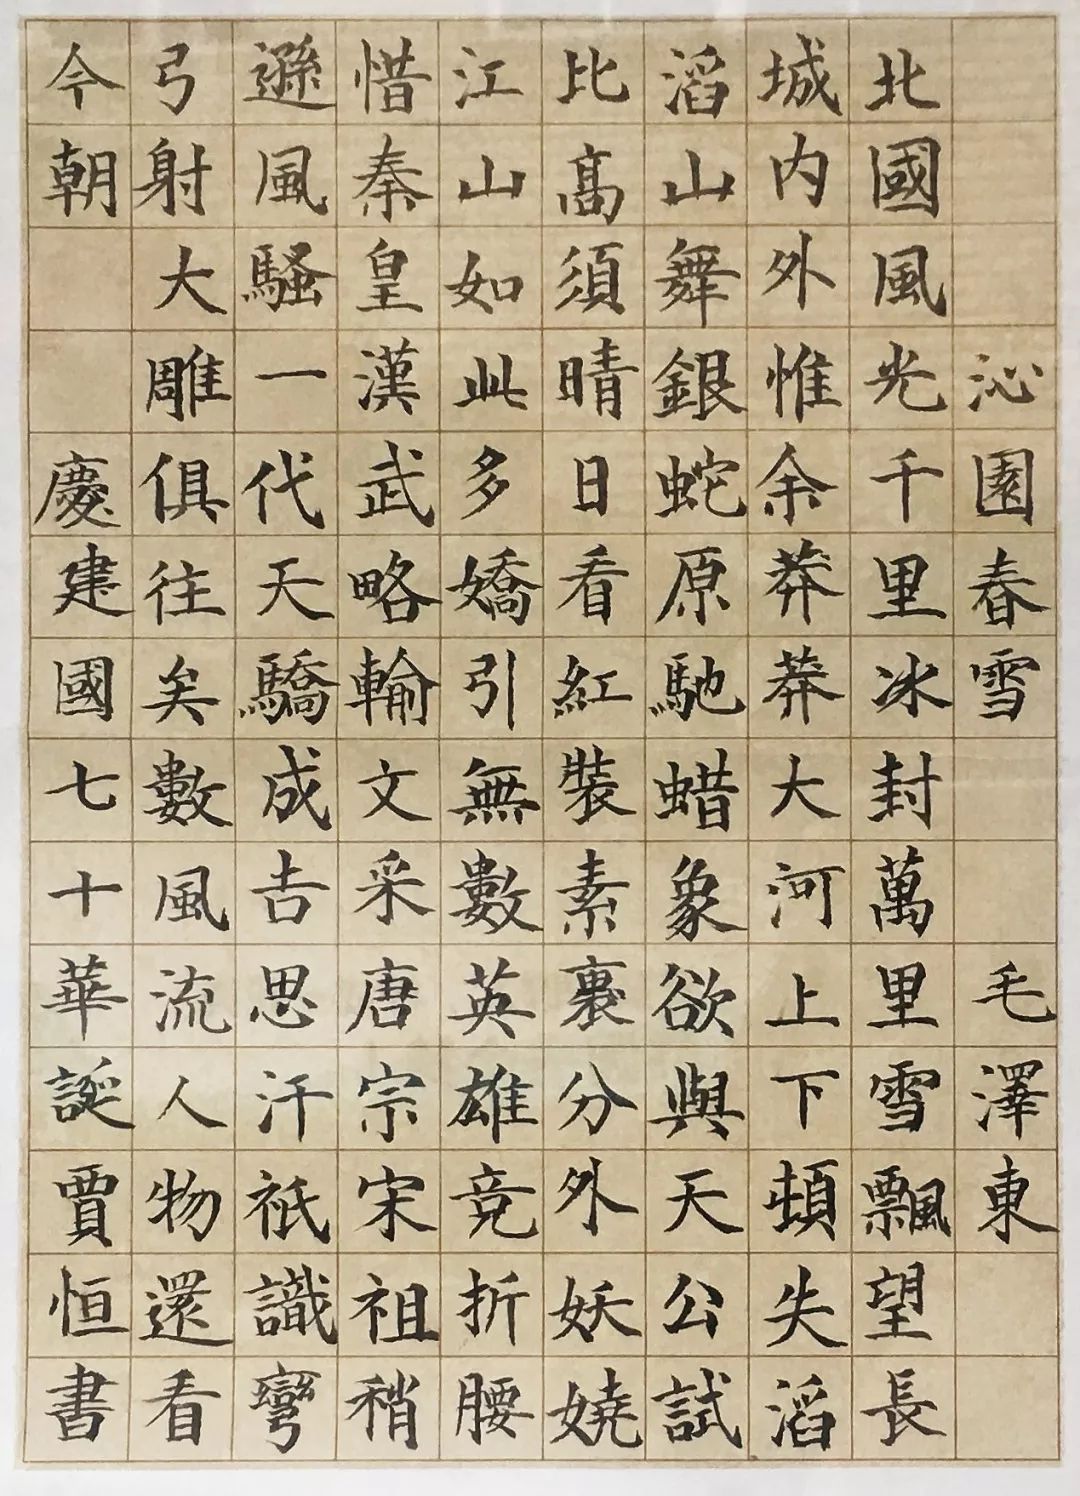 沁園春雪 毛澤東
北國風光千里冰封萬里雪飄望長
城内外惟余莽莽大河上下頓失滔
滔山舞銀蛇原馳蜡象欲與天公試
比髙須晴日看紅裝素裹分外妖嬈
江山如此多嬌引無數英雄竞折腰
惜秦皇漢武略輸文采唐宗宋祖稍
遜風騷一代天驕成吉思汗祇識彎
弓射大雕俱往矣數風流人物還看
今朝 慶建國七十華誕賈恒書